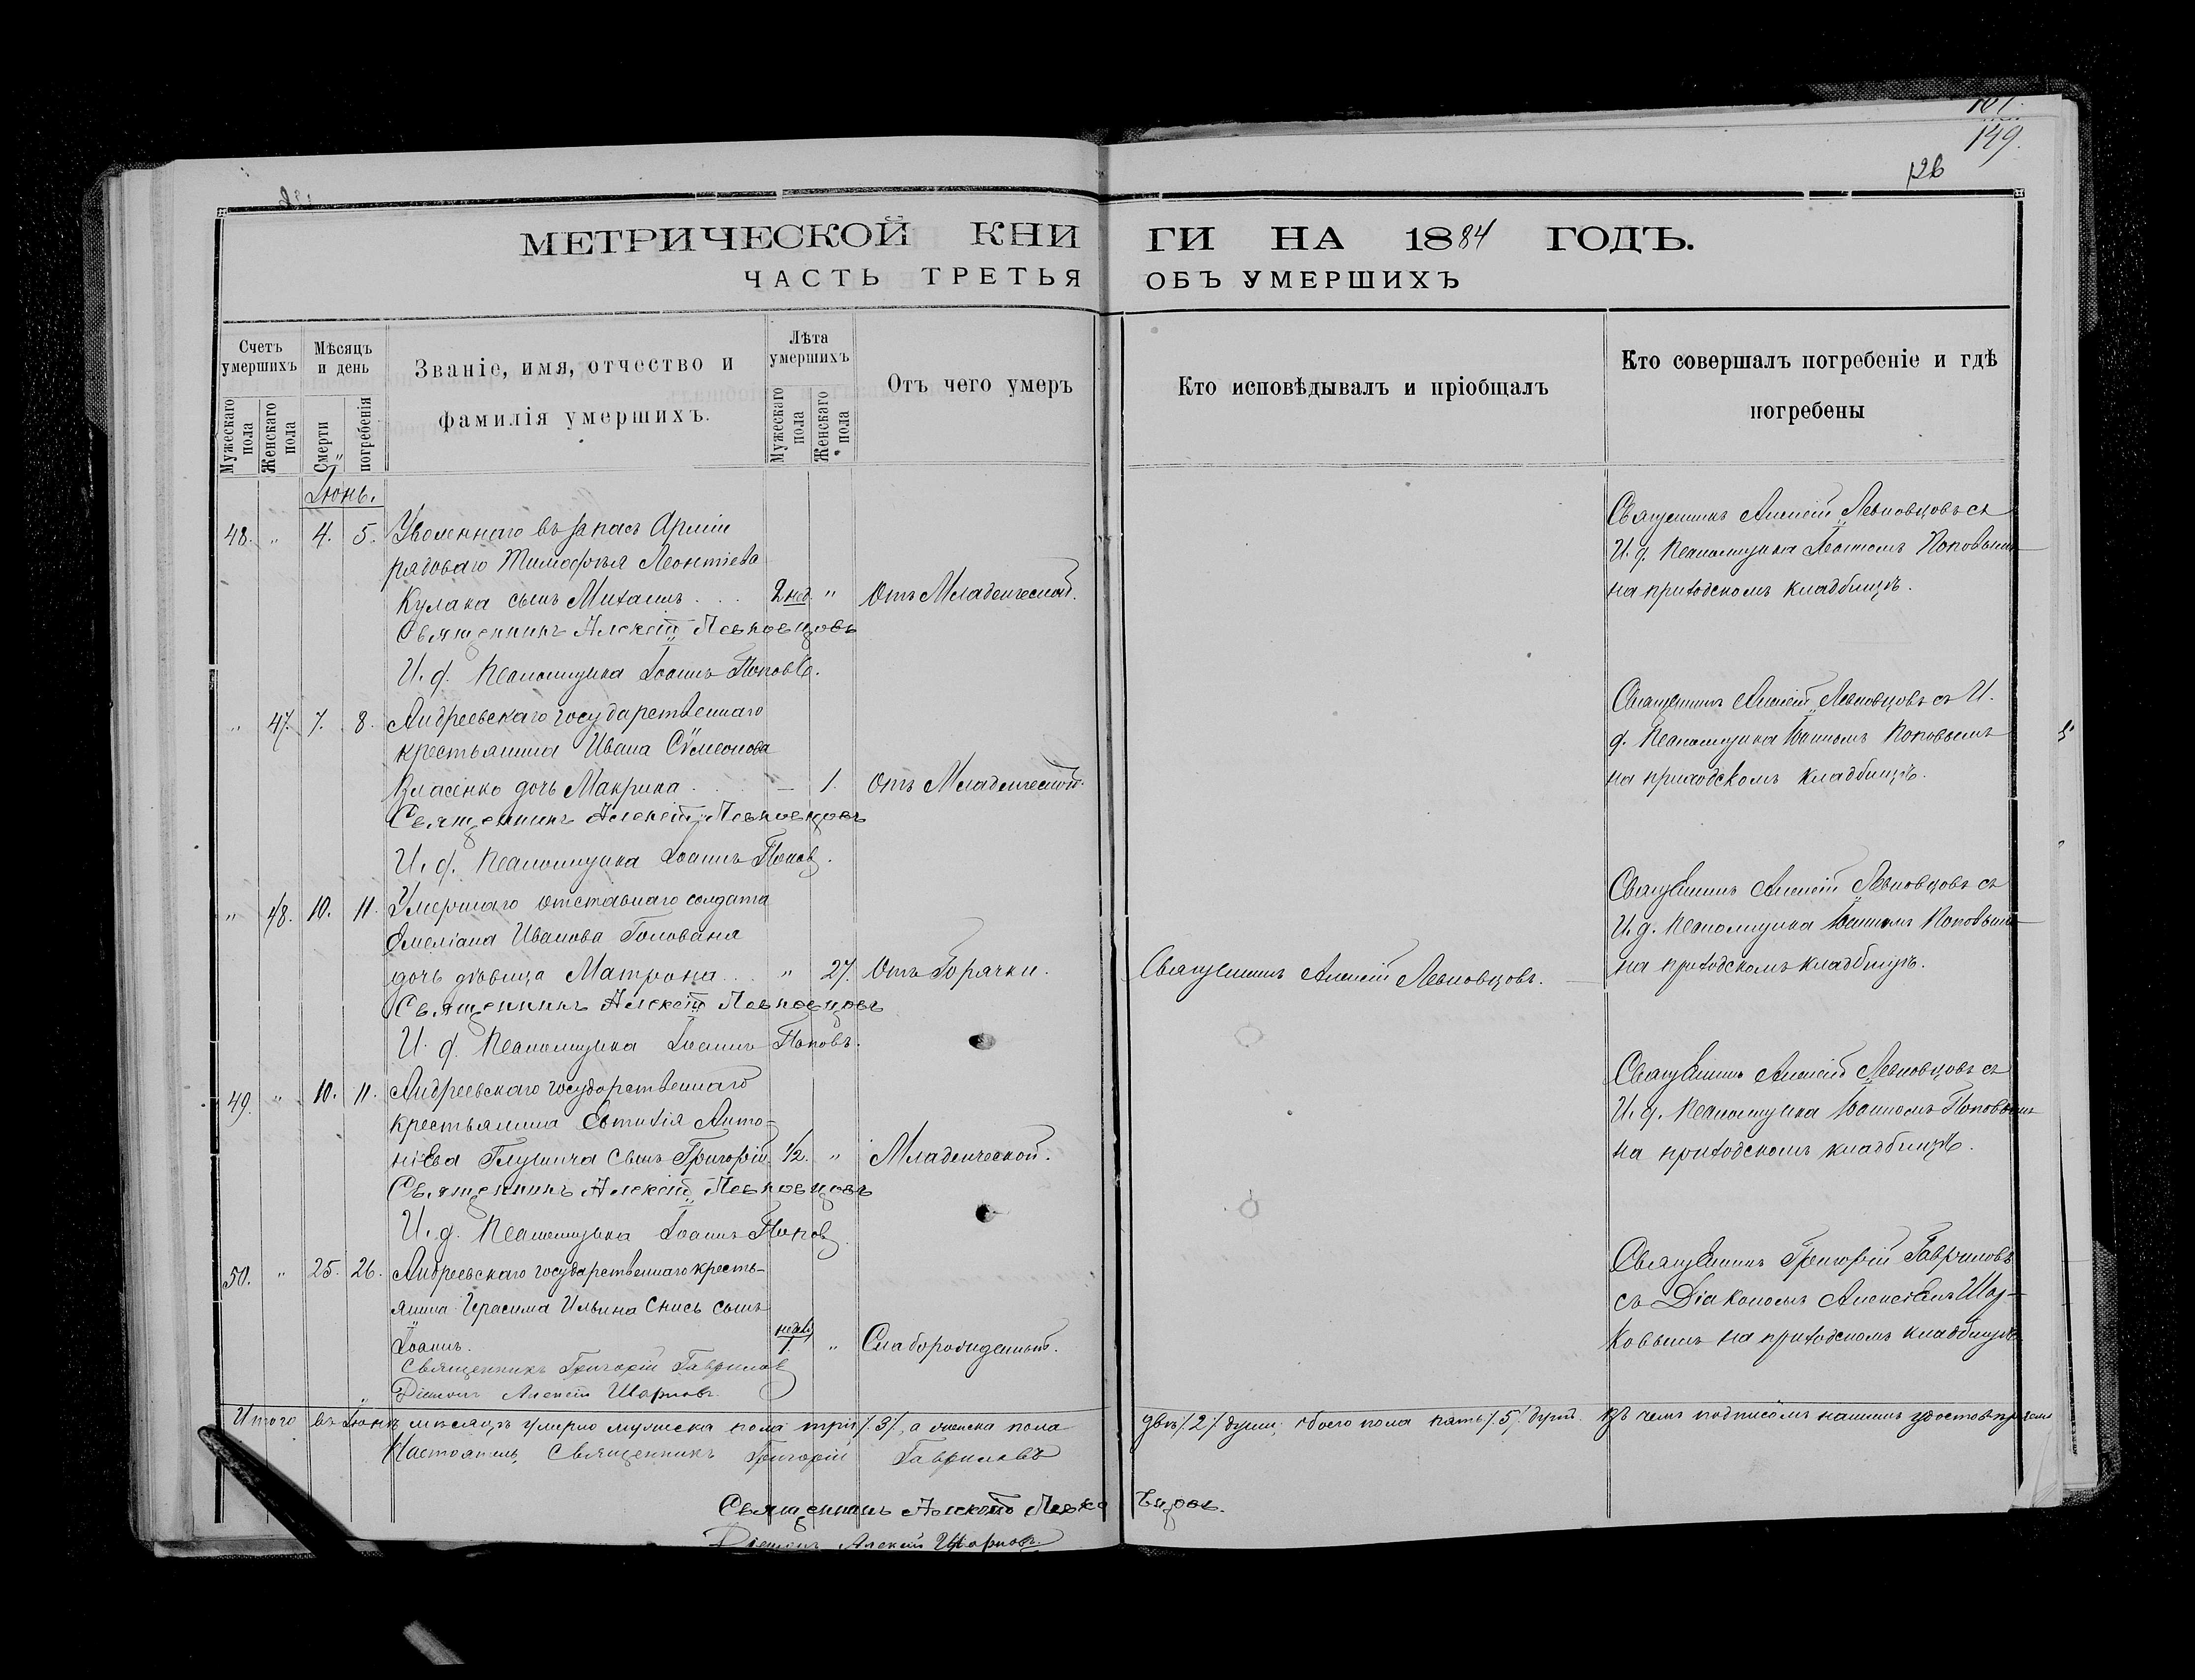 149.
126
МЕТРИЧЕСКОЙ КНИ ГИ НА 1884 ГОДЪ.
ЧАСТЬ ТРЕТЬЯ ОБЪ УМЕРШИХЪ
Счетъ умершихъ
Мѣсяцъ и день
Званіе, имя, отчество и фамилія умершихъ.
Лѣта умершихъ
Отъ чего умеръ
Кто исповѣдывалъ и пріобщалъ
Кто совершалъ погребеніе и гдѣ погребены
Мужескаго пола
Женскаго пола
Смерти
погребенія
Мужескаго пола
Женскаго пола
Іюнь.
48. " 4. 5. Уволеннаго въ запасъ Арміи
рядоваго Тимофѣя Леонтіева
Кулака сынъ Михаилъ . . . 2 нед. " Отъ Младенческой.
Священникъ Алексій Левковцовъ
И. д. Псаломщика Іоаннъ Поповъ.
Священникъ Алексій Левковцовъ съ
И. д. Псаломщика Іоанномъ Поповымъ
на приходскомъ кладбищѣ.
" 47. 7. 8. Андреевскаго государственнаго
крестьянина Ивана Сѵмеонова
Власенко дочь Макрина . . . — 1. Отъ Младенческой.
Священникъ Алексій Левковцовъ
И. д. Псаломщика Іоаннъ Поповъ.
Священникъ Алексій Левковцовъ съ И.
д. Псаломщика Іоанномъ Поповымъ
на приходскомъ кладбищѣ.
" 48. 10. 11. Умершаго отставнаго солдата
Емеліана Иванова Голованя
дочь дѣвица Матрона . . " 27. Отъ Горячки.
Священникъ Алексій Левковцовъ.
Священникъ Алексій Левковцовъ
И. д. Псаломщика Іоаннъ Поповъ.
Священникъ Алексій Левковцовъ съ
И. д. Псаломщика Іоанномъ Поповымъ
на приходскомъ кладбищѣ.
49. " 10. 11. Андреевскаго государственнаго
крестьянина Евтихія Анто-
ніева Глушича сынъ Григорій 1/2. " Младенческой.
Священникъ Алексій Левковцовъ
И. д. Псаломщика Іоаннъ Поповъ
Священникъ Алексій Левковцовъ съ
И. д. Псаломщика Іоанномъ Поповымъ
на приходскомъ кладбищѣ.
50. " 25. 26. Андреевскаго государственнаго кресть-
янина Герасима Ильина сынъ
Іоаннъ. 1. " Слаборожденный.
Священникъ Григорій Гавриловъ
Діаконъ Алексій
Священникъ Григорій Гавриловъ
съ Діакономъ Алексіемъ
ковымъ на приходскомъ кладбищѣ.
Итого въ Іюнѣ мѣсяцѣ умерло мужеска пола три /.3/., а женска пола двѣ /.2/. души; обоего пола пять /.5/. душъ. Въ чемъ подписомъ нашимъ удостовѣряемъ
Настоятель, Священникъ Григорій Гавриловъ
Священникъ Алексій Левковцовъ.
Діаконъ Алексій